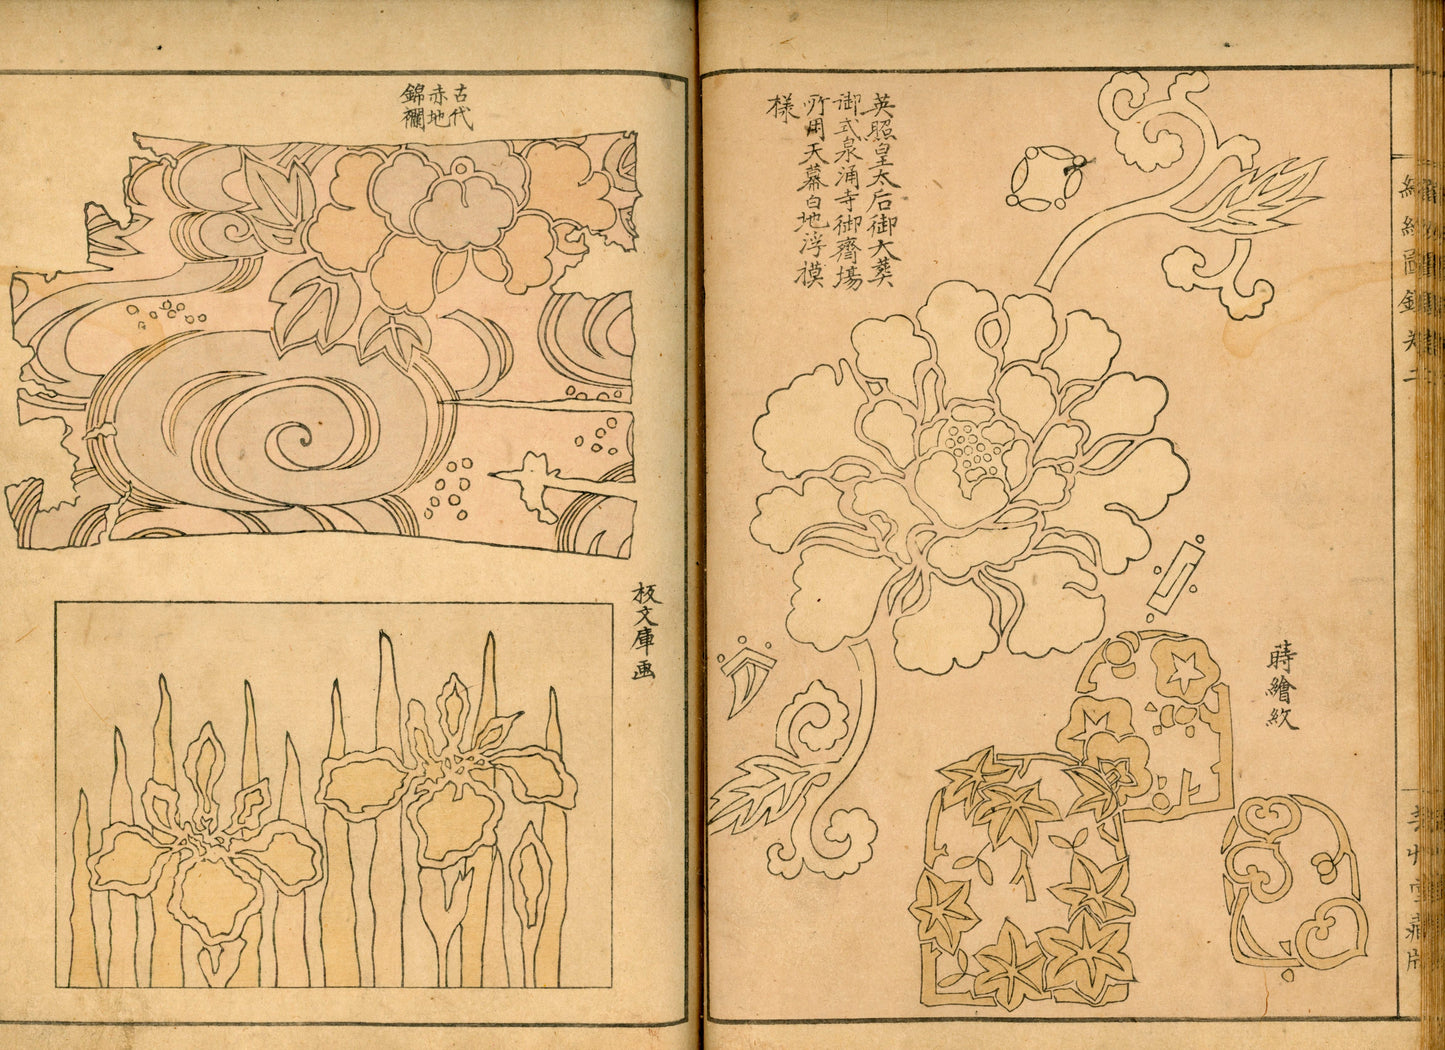 英照皇太后御大葬
御式泉涌寺御齋場
所用天幕白地浮模
様
蒔繪紋
古代
赤地
錦襴
板文庫画